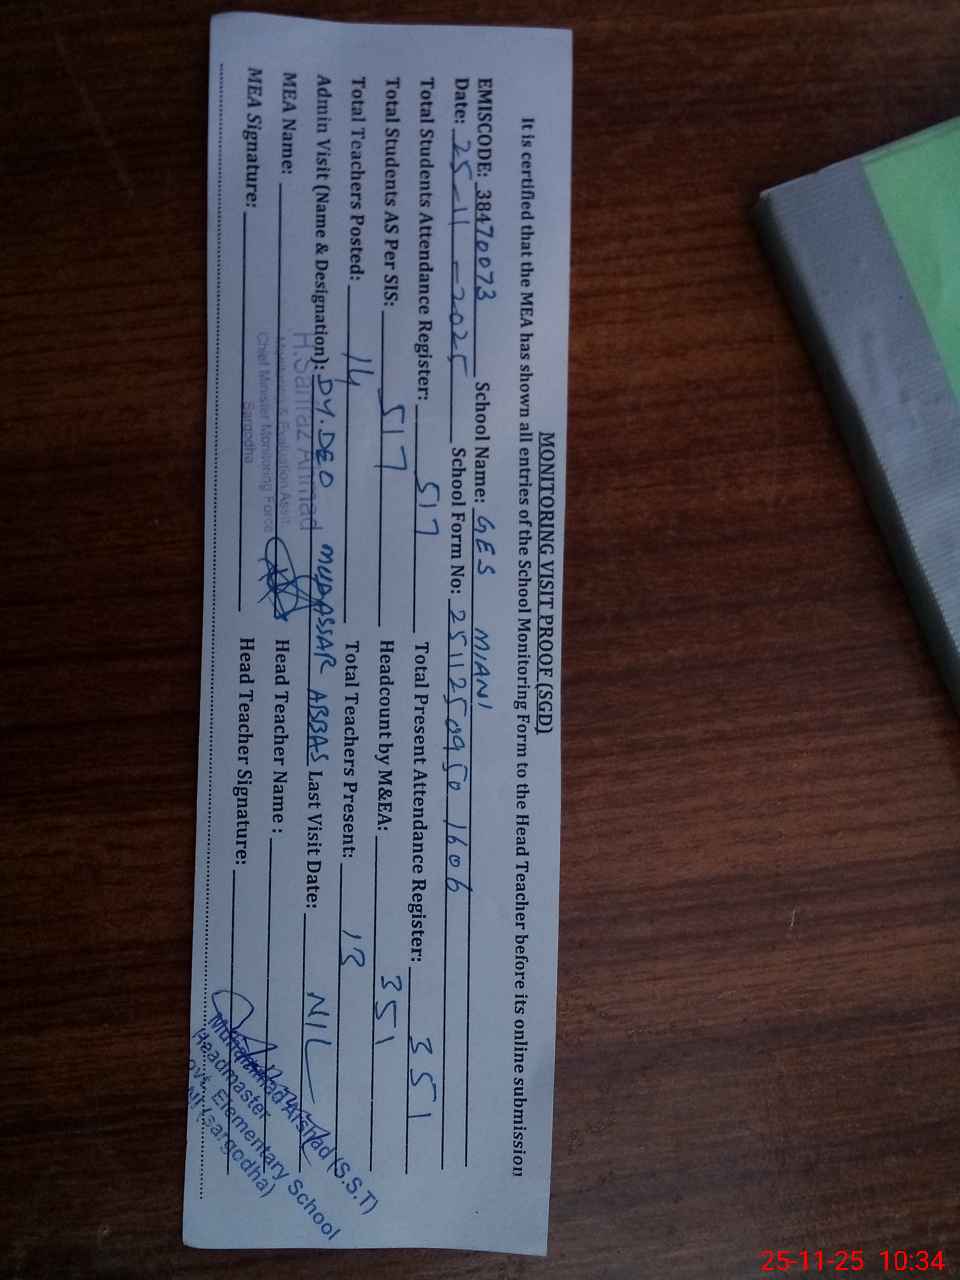 MONITORING VISIT PROOF (SGD)
It is certified that the MEA has shown all entries of the School Monitoring Form to the Head Teacher before its online submission
EMISCODE: 38470073 School Name: GES MIANI
Date: 25-11-2025 School Form No: 25112509501606
Total Students Attendance Register: 517 Total Present Attendance Register: 351
Total Students AS Per SIS: 517 Headcount by M&EA: 351
Total Teachers Posted: 14 Total Teachers Present: 13
Admin Visit (Name & Designation): DY. DEO MUDASSAR ABBAS Last Visit Date: NIL
MEA Name: Head Teacher Name :
MEA Signature: Head Teacher Signature:
Ahmad
Monitoring & Evaluation Asstt.
Chief Minister Monitoring Force
Sargodha
Muhammad Arshad (S.S.T)
Headmaster
Elementary School
(Sargodha)
25-11-25 10:34